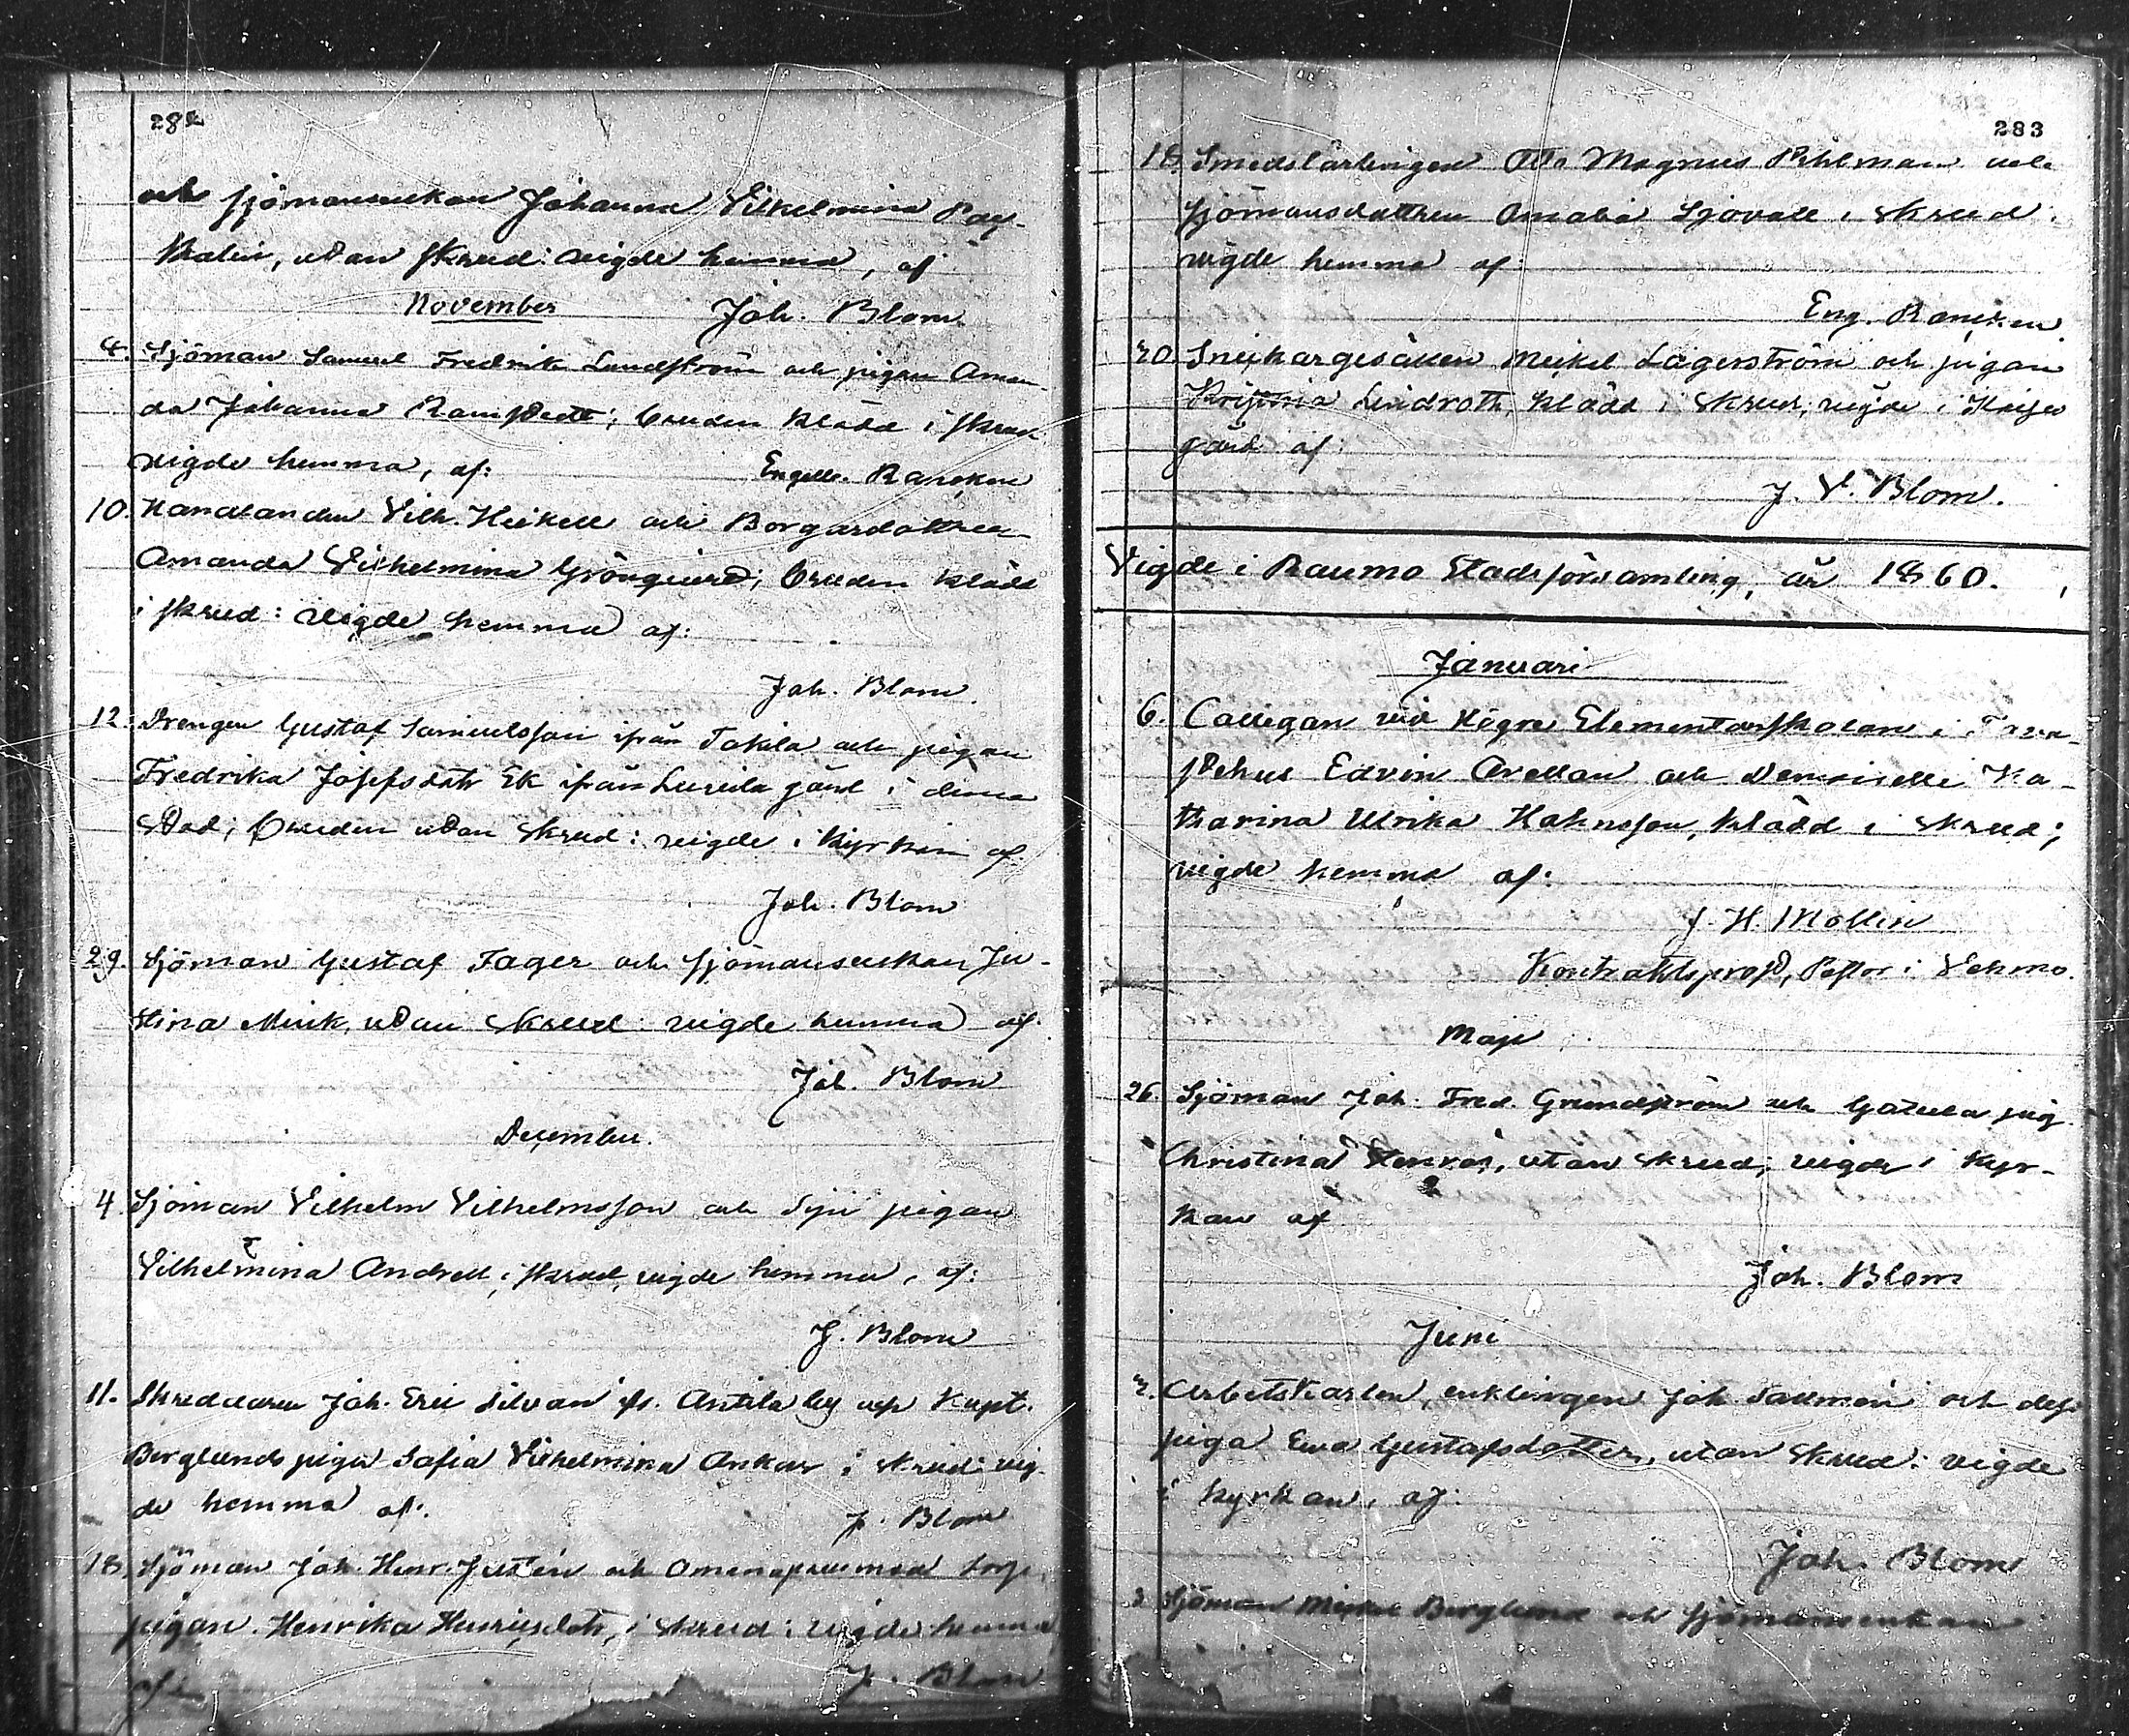 282
och sjömansenkan Johanna Vilhelmina Pay-
kalin, utan skrud: vigde hemma, af
November Joh. Blom.
4. Sjöman Samuel Fredrik Lundström och pigan Aman-
da Johanna Ramstedt; bruden klädd i skrud
vigde hemma, af: Engelb. Rancken
10. Handlanden Vilh. Heikell och Borgardottren
Amanda Vilhelmina Grönqvist; bruden klädd
i skrud: vigde hemma af:
Joh. Blom
12. Drengen Gustaf Samuelsson ifrån Takila och pigan
Fredrika Josefsdotr Ek ifrån gård i denna
stad; bruden utan skrud: vigde i Kyrkan af
Joh. Blom
29. Sjöman Gustaf Fager och sjömansenkan Ju-
stina Mink, utan skrud: vigde hemma af:
Joh. Blom
December.
4. Sjöman Vilhelm Vilhelmsson och pigan
Vilhelmina Andrell, i skrud, vigde hemma, af:
J. Blom
11. Skreddaren Joh. Eric Silvan fr. Antila by och Kapt.
Berglunds piga Sofia Vilhelmina Ankar i skrud: vig-
de hemma af: J. Blom
18. Sjöman Joh. Henr. Justén och
pigan Henrika Henricsdotr, i skrud: vigde hemma
af: J. Blom
283
18. Smedslärlingen Otto Magnus Pihlman och
sjömansdottren Amalia Sjövall i skrud:
vigde hemma af:
Eng. Rancken
20. Snickargesällen Meikel Lagerström och pigan
Kristina Lindroth, klädd i skrud; vigde i
gård af:
J. V. Blom.
Vigde i Raumo Stadsförsamling, år 1860.
Januari
6. Collegan vid Högre Elementarskolan i Tava-
stehus Edvin Avellan och Demoiselle Ka-
tharina Ulrika Hahnsson, klädd i skrud;
vigde hemma af:
J. H. Mollin
Kontraktsprost, Pastor i Vehmo.
Maji
26. Sjöman Joh. Fred. Grundström och pig.
Christina Stenros, utan skrud; vigde i Kyr-
kan af
Joh. Blom
Juni
2. Arbetskarlen, enklingen Joh. Sallmén och dess
piga Eva Gustafsdotter, utan skrud: vigde
i kyrkan, af:
Joh. Blom
3. Sjöman Mickel Berglund och sjömansenkan